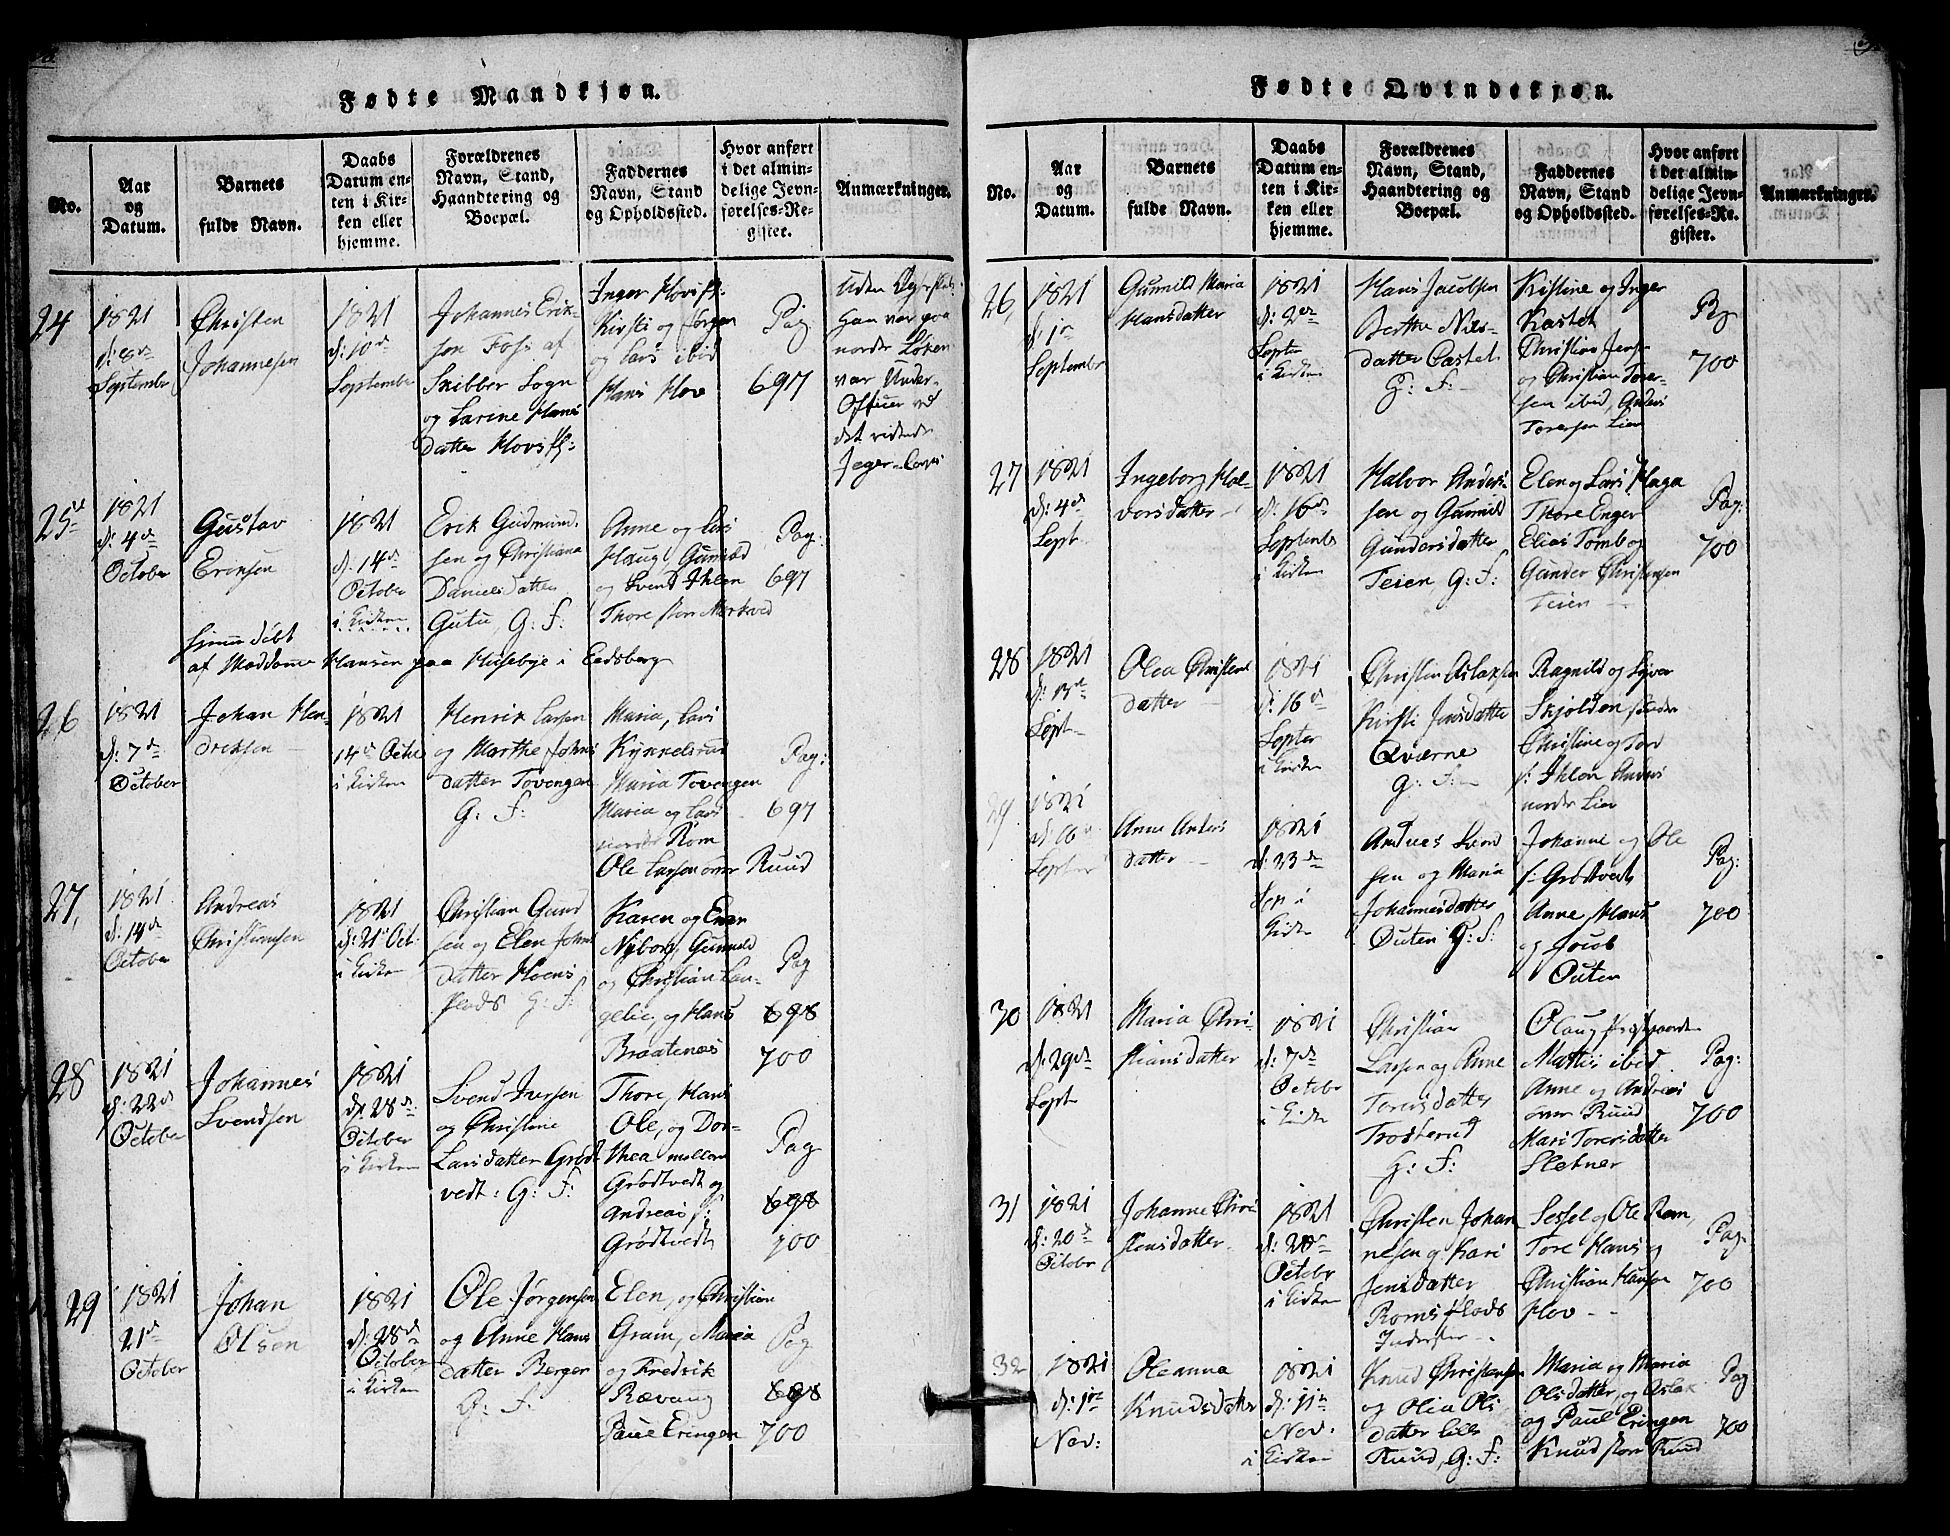 Fødte Mandkjøn.
No.
Aar
og
Datum.
Barnets
fulde Navn.
Daabs
Datum en-
ten i Kir-
ken eller
hjemme.
Forældrenes
Navn, Stand,
Haandtering og
Boepæl.
Faddernes
Navn, Stand
og Opholdssted.
Hvor anført
i det almin-
delige Jevn-
førelses-Re-
gister.
Anmærkninger.
24
1821
September
Christen
Johannesen
1821
d: 10de
September
Johannes Erik-
sen Foss af
Skibber Sogn
og Larine Hans
datter Hovs
Kirsti og Jørgen
og Lars ibid
Hans Hov
Pag
697
han var paa
nordr Løken
var Under-
Officer ved
det ridende
Jæger-Corps
25
1821
d: 4de
October
Gustav
Ericsen
1821
d: 14de
October
i Kirken
Erik Gudmund-
sen og Christiana
Danielsdatter
Gutu, G: F:
Anne og Lars
Haug, Gunild
og Svend Ihlen
Thore Mørkved
Pag:
697
hjemme døbt
af Maddame Hansen paa Husebye i Eedsberg
26
1821
d: 7de
October
Johan Hen-
dricsen
1821
14de Octbr
i Kirken
Henrik Larsen
og Marthe Johns
datter Tovengen
G: F:
Maria, Lars
Kynnelsrud
Maria Tovengen
Maria og Lars
nordr Røm
Ole Larsen over Ruud
Pag:
697
27,
1821
d: 14de
October
Andreas
Christiansen
1821
d: 21de Oct
i Kirken
Christian Gund
sen og Elen Johns
datter Hoens
Plads G: F:
Karen og Enar
Nyborg, Gunnild
og Christian Lan-
gelie, og Hans
Braatenæs
Pag
698
700
28
1821
d: 22de
October
Johannes
Svendsen
1821
d: 28de
October
i Kirken
Svend Iversen
og Christine
Larsdatter Grødt
vedt: G: F:
Thore, Hans
Ole, og Dor-
thea mellem
Grødtvedt og
Andreas
Grødtvedt
Pag
698
700
29
1821
21de
October
Johan
Olsen
1821
d: 28de
October
i Kirken
Ole Jørgensen
og Anne Hans
datter Berger
G: F:
Elen, og Christian
Gram, Maria
og Fredrik
Rævaug
Paul Eringen
Pag
698
700
Fødte Qvindekjøn.
No.
Aar
og
Datum.
Barnets
fulde Navn.
Daabs
Datum en-
ten i Kir-
ken eller
hjemme.
Forældrenes
Navn, Stand,
Haandtering og
Boepæl.
Faddernes
Navn, Stand
og Opholdssted.
Hvor anført
i det almin-
delige Jevn-
førelses-Re-
gister.
Anmærkninger.
26,
1821
d: 1ste
September
Gunnild Maria
Hansdatter
1821
d: 2den
Septer
i Kirken
Hans Jacobsen
Berthe Nils-
datter Castet
G: F:
Kistine og Inger
Kastet
Christian Jens-
og Christian Tore-
sen ibid, Anders
Toresen Lier
Pag
700
27
1821
d: 4de
Sept
Ingeborg Hal-
vorsdatter
1821
d: 16de
Septembr
i Kirken
Halvor Anders-
sen og Gunnild
Gundersdatter
Teien, G: F:
Elen og Lars Haga
Thore Enger
Elias Tomb og
Gunder Christensen
Teien
Pag:
700
28
1821
d: 13de
Sept
Olea Christens
datter
1821
d: 16de
Septer
i Kirken
Christen Aslaksen
Kirsti Jensdatter
Qværne
G: F:
Ragnild og Syver
Skjolden
Christine og Tord
Ihlen Anders
nordr Lier
29
1821
d: 16de
Septer
Anne Anders
datter
1821
d: 23de
Sep i
Kirken
Andreas Svend
sen og Maria
Johannesdatter
Outen G: F:
Johanne og Ole
Grødtvedt
Anne, Hans
og Jacob
Outen
Pag:
700
30
1821
d: 29de
Sept
Maria Chri-
stiansdatter
1821
d: 7de
Octobr
i Kirken
Christian
Larsen og Anne
Toresdatter
Trosterud
G: F:
Olaug Prestgaarden
Mathis ibid
Anne og Andreas
over Ruud
Mari Toresdatter
Sletner
Pag:
700
31
1821
d: 20de
Octobr
Johanne Chri
stensdatter
1821
d: 28de
Octobr
i Kirken
Christen Johan
nesen og Kari
Jensdatter
Roms Plads
Inderster
Sessel og Ole Rom,
Tore Hans og
Christian Hansen
Hov
Pag:
700
32
1821
d: 1ste
Nov:
Oleanna
Knudsdatter
1821
d: 11te
Nov.
i Kirken
Knud Christensen
og Olea Ols
datter lille
Ruud, G: F:
Maria og Maria
Olsdatter, og Aslak
og Paul Eringen
Knud store Ruud
Pag
700